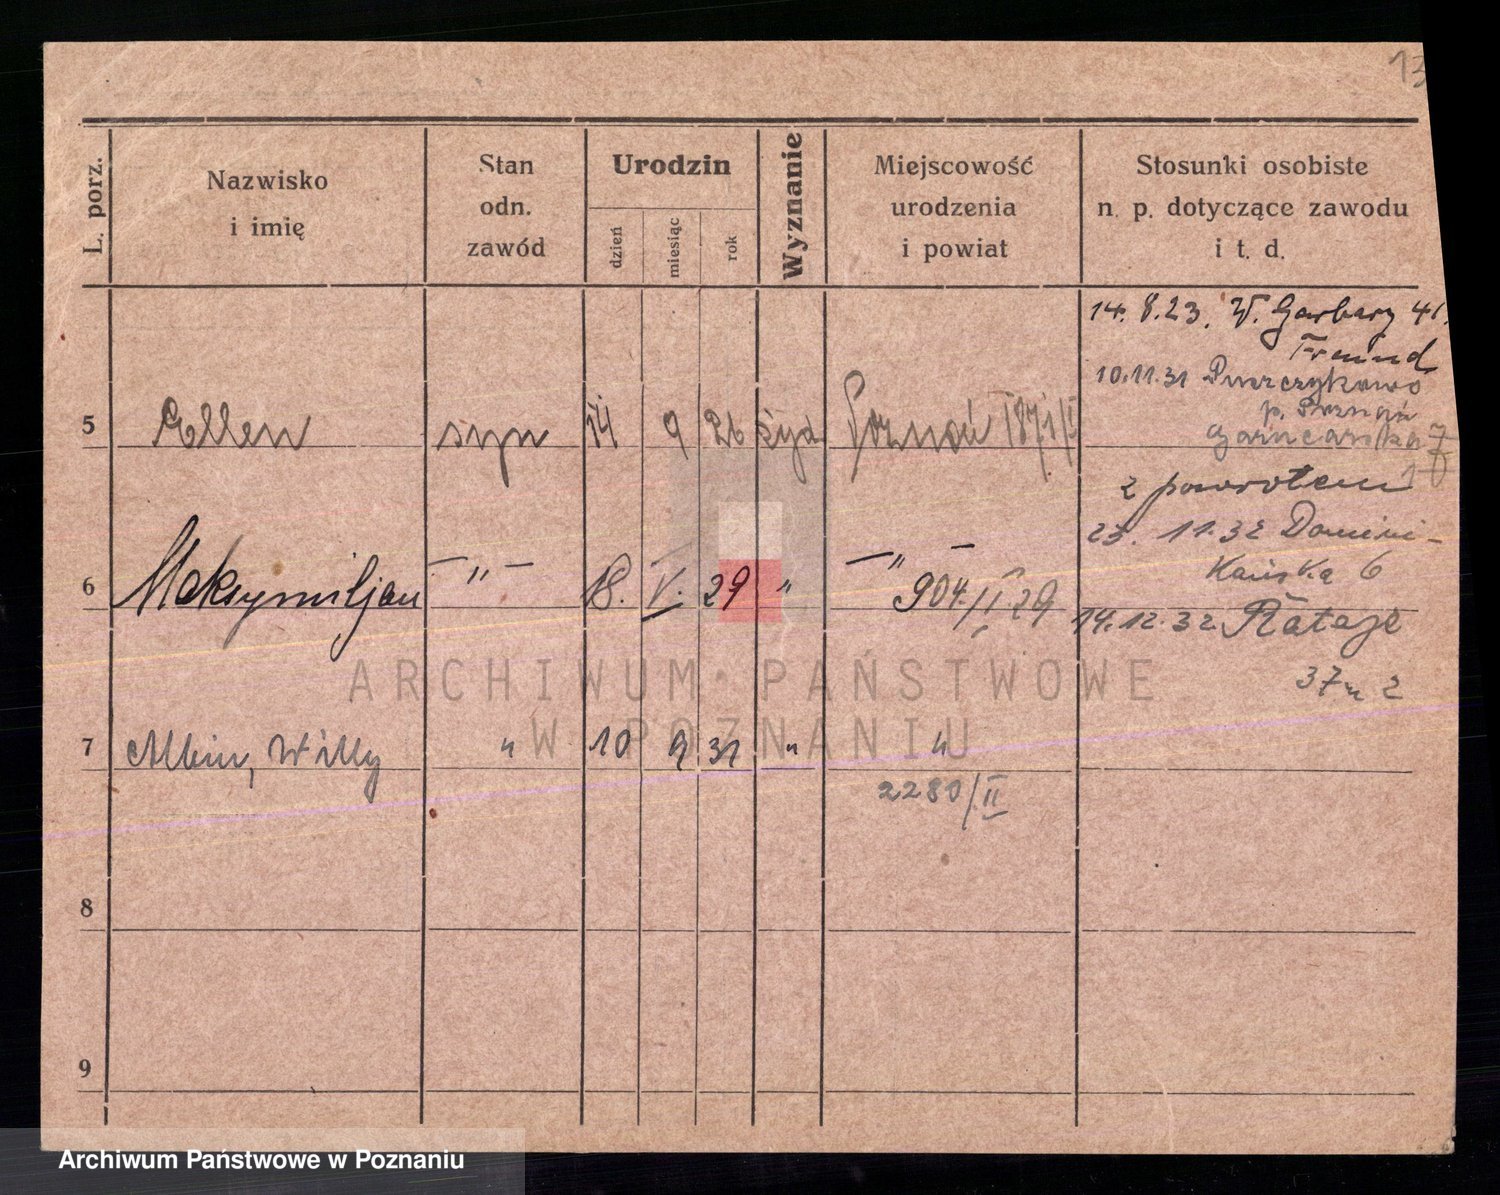 13
L. porz.
Nazwisko
i imię
Stan
odn.
zawód
Urodzin
dzień
miesiąc
rok
Wyznanie
Miejscowość
urodzenia
i powiat
Stosunki osobiste
n. p. dotyczące zawodu
i t. d.
14. 8. 23. W. Garbary 41.
Freund
10.11.31 Puszczykowo
p. Poznań
Garncarska 7
5 Ellen syn 14 9 26 żyd Poznań 1871/II
10
z powrotem
23. 11.32 Domini-
kańska 6
6 Maksymiljan —"— 18. V. 29 " —"—
904/II 29
14.12.32 Rataje
37 m 2
ARCHIWUM PAŃSTWOWE
W POZNANIU
7 Albin, Willy " 10 9 31 " "
2280/II
8
9
Archiwum Państwowe w Poznaniu